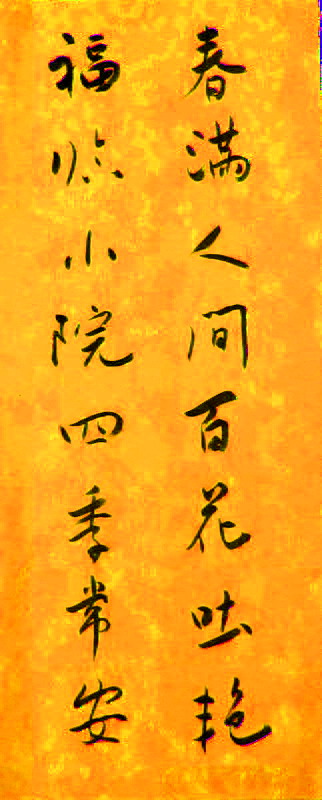 春满人间百花吐艳
福临小院四季常安